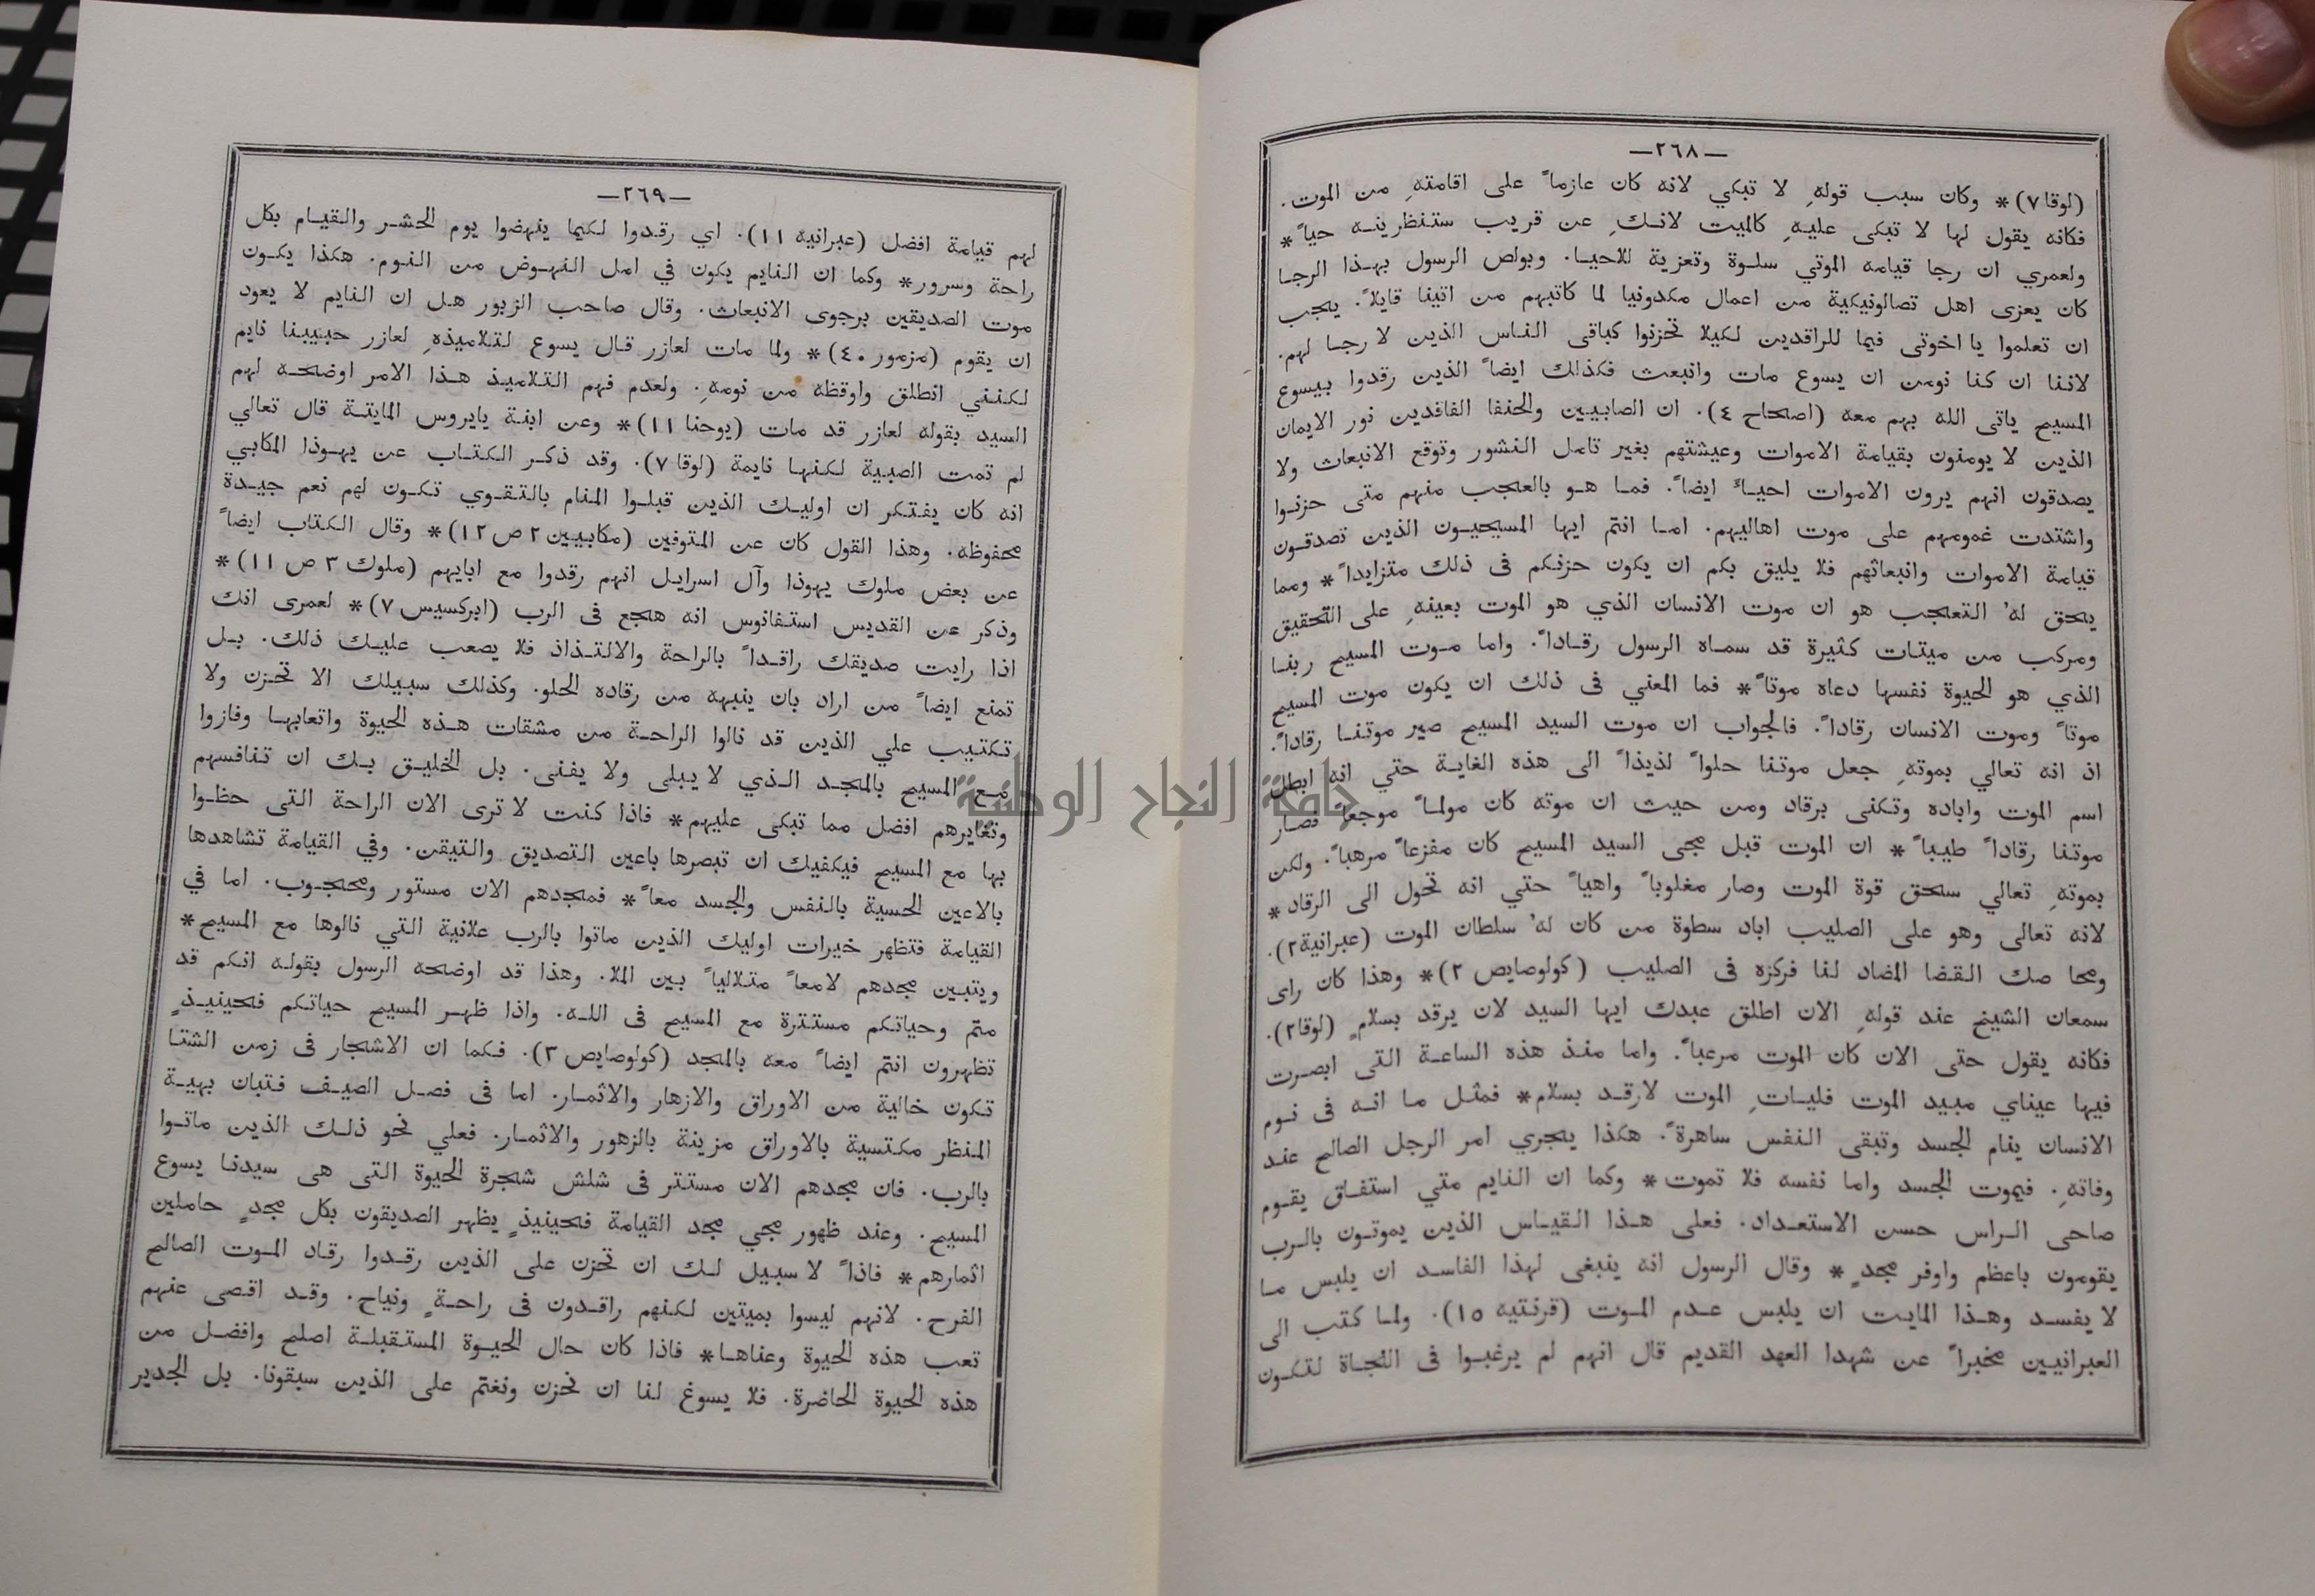 —٢٦٨—
(لوقا ٧)* وكان سبب قولهِ لا تبكي لانه كان عازماً على اقامتهِ من الموت.
فكانه يقول لها لا تبكى عليهِ كالميت لانكِ عن قريب ستنظرينه حياً*
ولعمري ان رجا قيامه الموتي سلوة وتعزية للاحيا. وبولص الرسول بهذا الرجا
كان يعزى اهل تصالونيكية من اعمال مكدونيا لما كاتبهم من اتينا قايلاً. يجب
ان تعلموا يا اخوتى فيما للراقدين لكيلا تحزنوا كباقى الناس الذين لا رجا لهم.
لاننا ان كنا نومن ان يسوع مات وانبعث فكذلك ايضاً الذين رقدوا بيسوع
المسيح ياتى الله بهم معه (اصحاح ٤). ان الصابيين والحنفا الفاقدين نور الايمان
الذين لا يومنون بقيامة الاموات وعيشتهم بغير تامل النشور وتوقع الانبعاث ولا
يصدقون انهم يرون الاموات احياءً ايضاً. فما هو بالعجب منهم متى حزنوا
واشتدت غمومهم على موت اهاليهم. اما انتم ايها المسيحيون الذين تصدقون
قيامة الاموات وانبعاثهم فلا يليق بكم ان يكون حزنكم فى ذلك متزايداً* ومما
يحق لهُ التعجب هو ان موت الانسان الذي هو الموت بعينهِ على التحقيق
ومركب من ميتات كثيرة قد سماه الرسول رقاداً. واما موت المسيح ربنا
الذي هو الحيوة نفسها دعاه موتاً* فما المعني فى ذلك ان يكون موت المسيح
موتاً وموت الانسان رقاداً. فالجواب ان موت السيد المسيح صير موتنا رقاداً.
اذ انه تعالي بموتهِ جعل موتنا حلواً لذيذاً الى هذه الغاية حتي انه ابطل
اسم الموت واباده وتكنى برقاد ومن حيث ان موته كان مولماً موجعاً فصار
موتنا رقاداً طيباً* ان الموت قبل مجى السيد المسيح كان مفزعاً مرهباً. ولكن
بموتهِ تعالي سحق قوة الموت وصار مغلوباً واهياً حتي انه تحول الى الرقاد*
لانه تعالى وهو على الصليب اباد سطوة من كان لهُ سلطان الموت (عبرانية ٢).
ومحا صك القضا المضاد لنا فركزه فى الصليب (كولوصايص ٢)* وهذا كان راى
سمعان الشيخ عند قولهِ الان اطلق عبدك ايها السيد لان يرقد بسلامٍ (لوقا ٢).
فكانه يقول حتى الان كان الموت مرعباً. واما منذ هذه الساعة التى ابصرت
فيها عيناي مبيد الموت فلياتِ الموت لارقد بسلام* فمثل ما انه فى نوم
الانسان ينام الجسد وتبقى النفس ساهرةً. هكذا يجري امر الرجل الصالح عند
وفاتهِ. فيموت الجسد واما نفسه فلا تموت* وكما ان النايم متي استفاق يقوم
صاحى الراس حسن الاستعداد. فعلى هذا القياس الذين يموتون بالرب
يقومون باعظم واوفر مجدٍ* وقال الرسول انه ينبغى لهذا الفاسد ان يلبس ما
لا يفسد وهذا المايت ان يلبس عدم الموت (قرنتيه ١٥). ولما كتب الى
العبرانيين مخبراً عن شهدا العهد القديم قال انهم لم يرغبوا فى النجاة لتكون
—٢٦٩—
لهم قيامة افضل (عبرانيه ١١). اي رقدوا لكيما ينهضوا يوم الحشر والقيام بكل
راحة وسرور* وكما ان النايم يكون في امل النهوض من النوم. هكذا يكون
موت الصديقين برجوى الانبعاث. وقال صاحب الزبور هل ان النايم لا يعود
ان يقوم (مزمور ٤٠)* ولما مات لعازر قال يسوع لتلاميذهِ لعازر حبيبنا نايم
لكنني انطلق واوقظه من نومهِ. ولعدم فهم التلاميذ هذا الامر اوضحه لهم
السيد بقوله لعازر قد مات (يوحنا ١١)* وعن ابنة يايروس المايتة قال تعالي
لم تمت الصبية لكنها نايمة (لوقا ٧). وقد ذكر الكتاب عن يهوذا المكابي
انه كان يفتكر ان اوليك الذين قبلوا المنام بالتقوي تكون لهم نعم جيدة
محفوظه. وهذا القول كان عن المتوفين (مكابيين ٢ ص ١٢)* وقال الكتاب ايضاً
عن بعض ملوك يهوذا وآل اسرايل انهم رقدوا مع ابايهم (ملوك ٣ ص ١١)*
وذكر عن القديس استفانوس انه هجع فى الرب (ابركسيس ٧)* لعمرى انك
اذا رايت صديقك راقداً بالراحة والالتذاذ فلا يصعب عليك ذلك. بل
تمنع ايضاً من اراد بان ينبهه من رقاده الحلو. وكذلك سبيلك الا تحزن ولا
تكتيب علي الذين قد نالوا الراحة من مشقات هذه الحيوة واتعابها وفازوا
مع المسيح بالمجد الذي لا يبلى ولا يفنى. بل الخليق بك ان تنافسهم
وتغايرهم افضل مما تبكى عليهم* فاذا كنت لا ترى الان الراحة التى حظوا
بها مع المسيح فيكفيك ان تبصرها باعين التصديق والتيقن. وفي القيامة تشاهدها
بالاعين الحسية بالنفس والجسد معاً* فمجدهم الان مستور ومحجوب. اما في
القيامة فتظهر خيرات اوليك الذين ماتوا بالرب علانية التي نالوها مع المسيح*
ويتبين مجدهم لامعاً متلالياً بين الملا. وهذا قد اوضحه الرسول بقوله انكم قد
متم وحياتكم مستترة مع المسيح فى الله. واذا ظهر المسيح حياتكم فحينيذٍ
تظهرون انتم ايضاً معه بالمجد (كولوصايص ٣). فكما ان الاشجار فى زمن الشتا
تكون خالية من الاوراق والازهار والاثمار. اما فى فصل الصيف فتبان بهية
المنظر مكتسية بالاوراق مزينة بالزهور والاثمار. فعلي نحو ذلك الذين ماتوا
بالرب. فان مجدهم الان مستتر فى شلش شجرة الحيوة التى هى سيدنا يسوع
المسيح. وعند ظهور مجي مجد القيامة فحينيذٍ يظهر الصديقون بكل مجدٍ حاملين
اثمارهم* فاذاً لا سبيل لك ان تحزن على الذين رقدوا رقاد الموت الصالح
الفرح. لانهم ليسوا بميتين لكنهم راقدون فى راحةٍ ونياح. وقد اقصى عنهم
تعب هذه الحيوة وعناها* فاذا كان حال الحيوة المستقبلة اصلح وافضل من
هذه الحيوة الحاضرة. فلا يسوغ لنا ان نحزن ونغتم على الذين سبقونا. بل الجدير
جامعة النجاح الوطنية